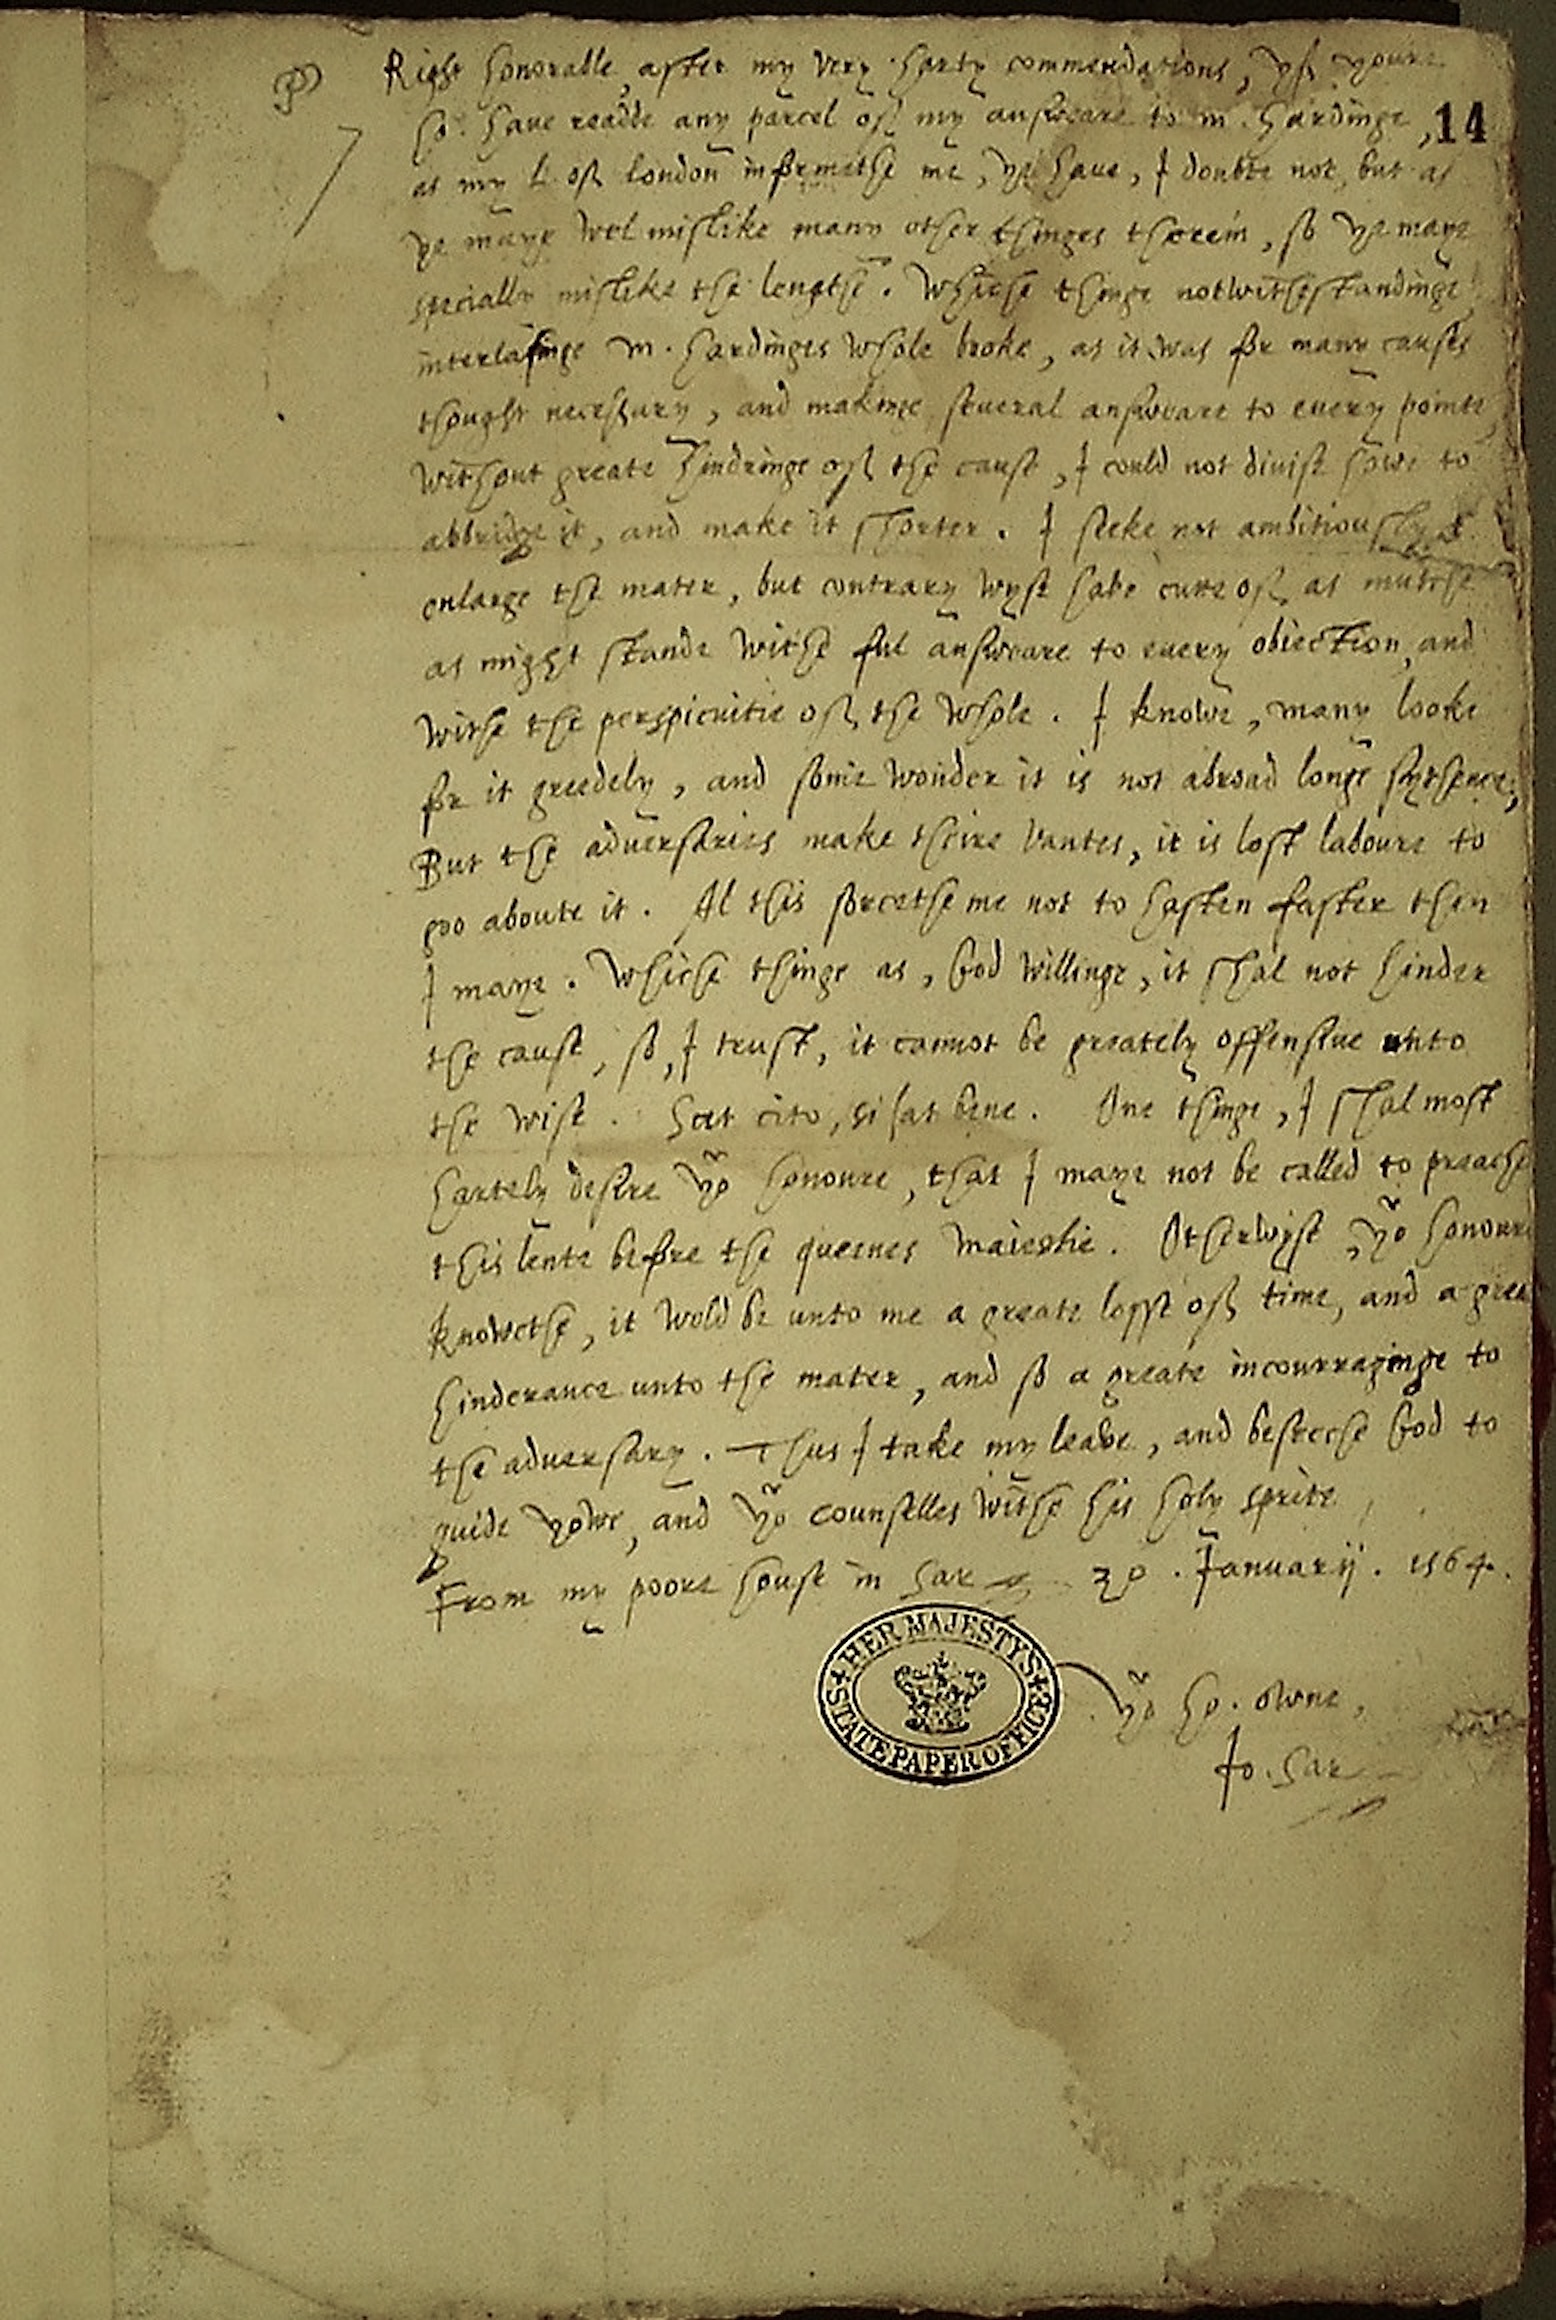 Right honorable, after my very harty commendations, yf youre
14
ho. have readde any parcel of my answeare to m. Hardinge,
as my L. of london informethe me, ye have, I doubte not, but as
ye maye wel mislike many other thinges therein, so ye maye
specially mislike the lengthe. Whiche thinge notwithestandinge,
interlasinge m. Hardinges whole booke, as it was for many causes
thought necessary, and makinge several answeare to every pointe,
without greate hindringe of the cause, I could not divise howe to
abbridge it, and make it shorter. I seeke not ambitiously to
enlarge the mater, but contrary wyse have cutte of, as mutche
as might stande withe ful answeare to every obiection, and
withe the perspicuitie of the whole. I knowe, many looke
for it greedely, and some wonder it is not abroad longe sythence,
But the adversaries make theire vantes, it is lost laboure to
goo aboute it. Al this forcethe me not to hasten faster then
I maye. Whiche thinge as, God willinge, it shal not hinder
the cause, so, I trust, it cannot be greately offensive unto
the wise. Sat cito, si sat bene. One thinge, I shal most
hartely desire yor honoure, that I maye not be called to preache
this lente before the queenes maiestie. Otherwyse, yor honoure
knowethe, it wold be unto me a greate losse of time, and a grea
hinderance unto the mater, and so a greate incourraginge to
the adversary. Thus I take my leave, and beseeche God to
guide yowe, and yor counselles withe his holy sprite.
From my poore house in Sar 20. Januarij. 1564.
yor ho. owne,
Jo. Sar
HER MAJESTY'S STATE PAPER OFFICE